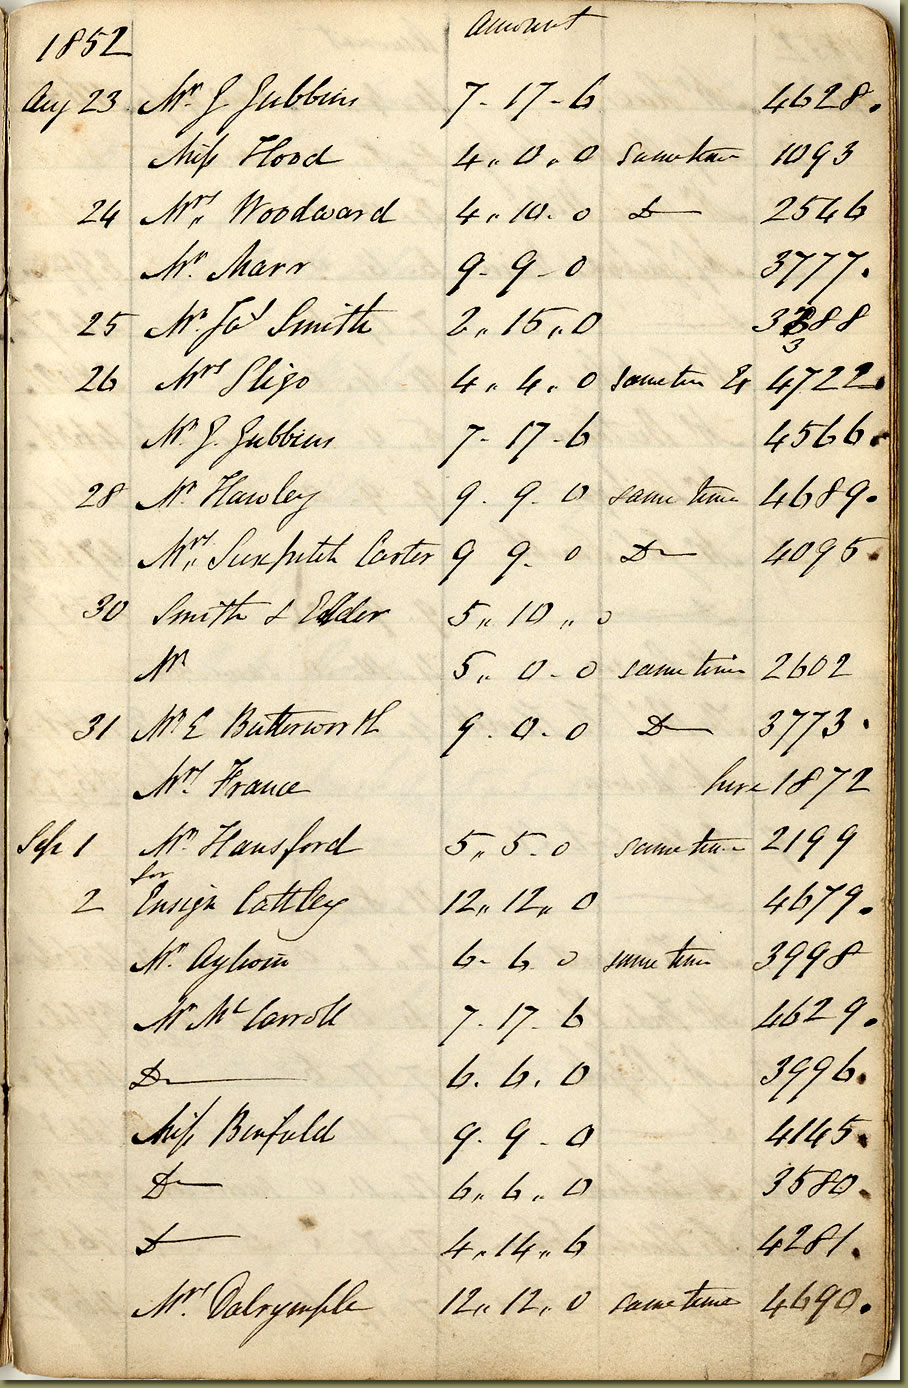 1852 Amount
Aug 23 Mr J Jubbins 7-17-6 4628.
Miss Hood 4.. 0.. 0 sometime 1093
24 Mrs Woodward 4.. 10. 0 Do 2546
Mr. Marr 9-9-0 3777.
25 Mr. Jas Smith 2.. 15.. 0 3388
3
26 Mrs Sligo 4.. 4.. 0 sometime 4722.
Mr. J. Jubbins 7-17-6 4566.
28 Mr. Hawley 9. 9. 0 some time 4689.
Mrs Carter 9 9. 0 Do 4095.
30 Smith & Elder 5.. 10.. 0
Mr 5.. 0-0 some time 2602
31 Mr E Butterworth 9. 0. 0 Do 3773.
Mrs. France here 1872
Sep 1 Mr. Hansford 5.. 5-0 sometime 2199
for
2 Ensign Cattley 12.. 12.. 0 4679.
Mr. 6-6 0 some time 3998
Mr Mc Carroll 7-17-6 4629.
Do 6. 6. 0 3996.
Miss Binfield 9. 9-0 4145.
Do 6.. 6.. 0 3580.
Do 4.. 14.. 6 4281.
Mrs Dalrymple 12.. 12.. 0 some time 4690.